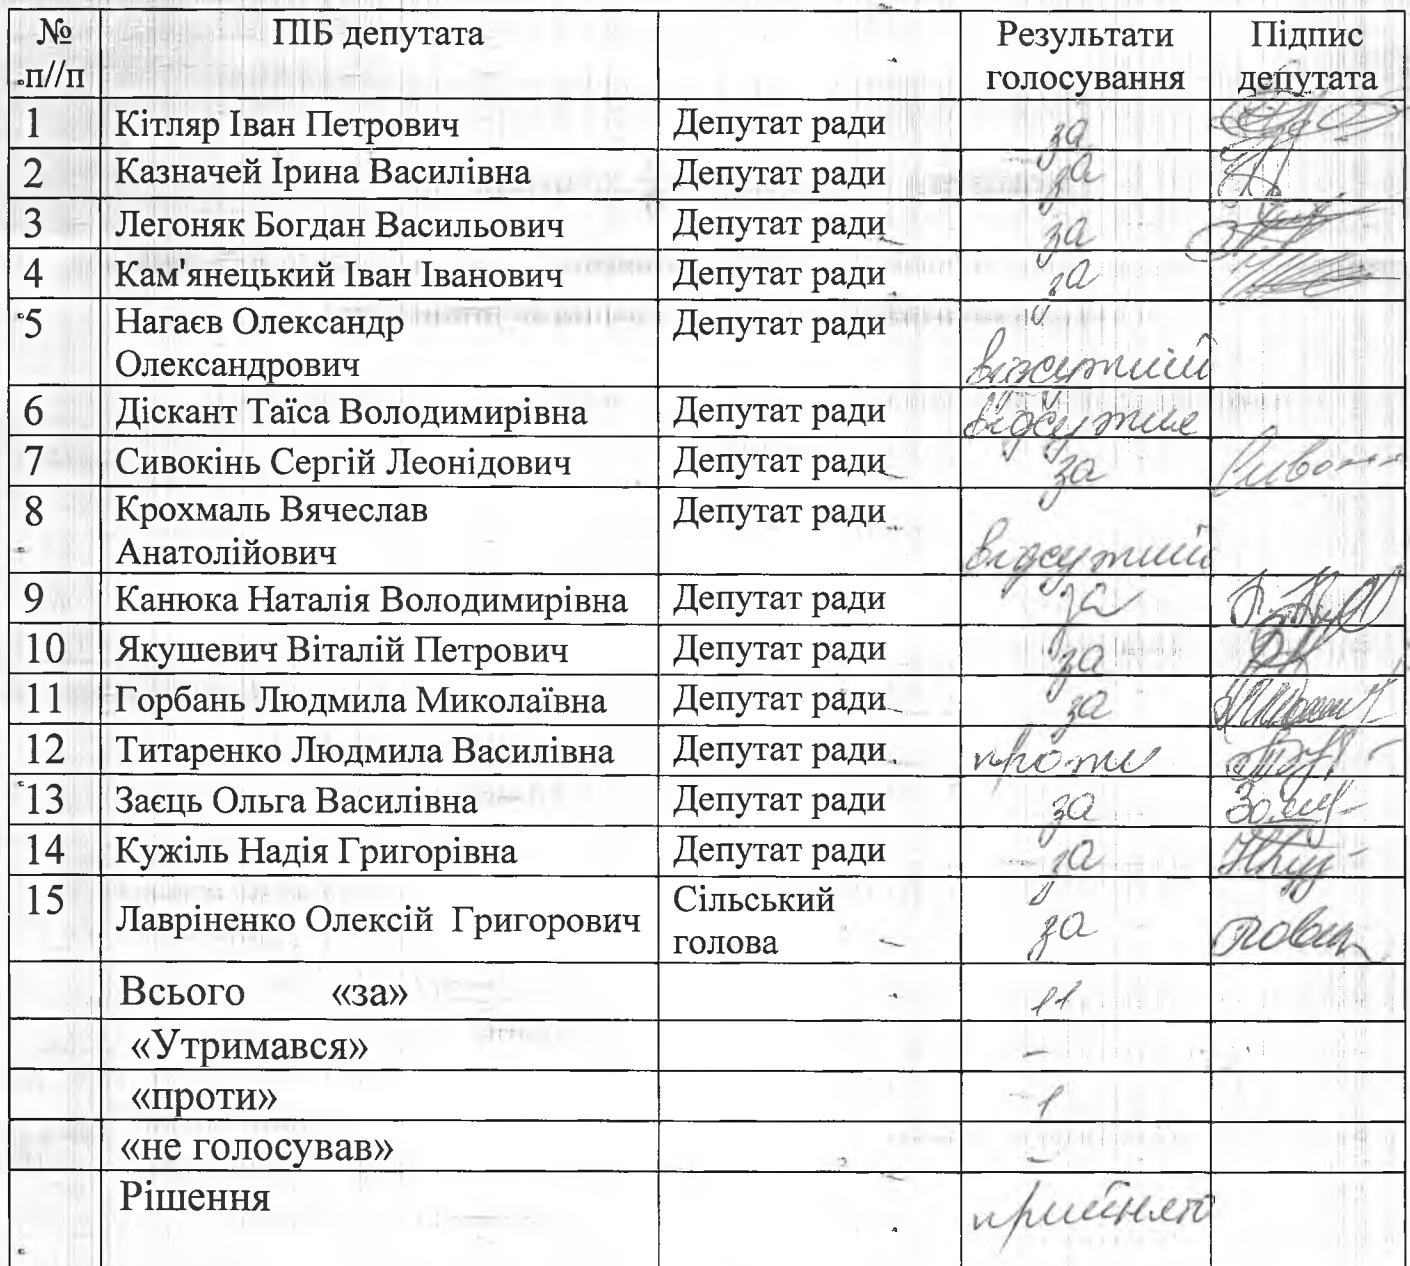 № ПІБ депутата Результати Підпис
п//п голосування депутата
1 Кітляр Іван Петрович Депутат ради за
2 Казначей Ірина Василівна Депутат ради за
3 Легоняк Богдан Васильович Депутат ради за
4 Кам'янецький Іван Іванович Депутат ради за
5 Нагаєв Олександр Депутат ради
Олександрович відсутній
6 Діскант Таїса Володимирівна Депутат ради відсутня
7 Сивокінь Сергій Леонідович Депутат ради за
8 Крохмаль Вячеслав Депутат ради
Анатолійович відсутній
9 Канюка Наталія Володимирівна Депутат ради за
10 Якушевич Віталій Петрович Депутат ради за
11 Горбань Людмила Миколаївна Депутат ради за
12 Титаренко Людмила Василівна Депутат ради проти
13 Заєць Ольга Василівна Депутат ради за
14 Кужіль Надія Григорівна Депутат ради за
15 Лавріненко Олексій Григорович Сільський за
голова
Всього «за» 11
«Утримався» –
«проти» 1
«не голосував» –
Рішення прийнято